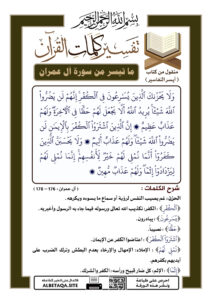 بسم الله الرحمن الرحيم
تفسير كلمات القرآن
ما تيسر من سورة آل عمران
منقول من كتاب
( أيسر التفاسير )
وَلَا يَحْزُنكَ الَّذِينَ يُسَارِعُونَ فِي الْكُفْرِ إِنَّهُمْ لَن يَضُرُّوا
اللَّهَ شَيْئًا يُرِيدُ اللَّهُ أَلَّا يَجْعَلَ لَهُمْ حَظًّا فِي الْآخِرَةِ وَلَهُمْ
عَذَابٌ عَظِيمٌ إِنَّ الَّذِينَ اشْتَرَوُا الْكُفْرَ بِالْإِيمَانِ لَن
يَضُرُّوا اللَّهَ شَيْئًا وَلَهُمْ عَذَابٌ أَلِيمٌ وَلَا يَحْسَبَنَّ الَّذِينَ
كَفَرُوا أَنَّمَا نُمْلِي لَهُمْ خَيْرٌ لِّأَنفُسِهِمْ إِنَّمَا نُمْلِي لَهُمْ
لِيَزْدَادُوا إِثْمًا وَلَهُمْ عَذَابٌ مُّهِينٌ
شرح الكلمات : ( آل عمران : 176 - 178 )
الحزن: غم يصيب النفس لرؤية أو سماع ما يسوءه ويكرهه.
(الْكُفْرِ) : الكفر: تكذيب الله تعالى ورسوله فيما جاء به الرسول وأخبر به.
(يُسَارِعُونَ) : يبادرون.
(حَظًّا) : نصيباً.
(اشْتَرَوُا الْكُفْرَ) : اعتاضوا الكفر عن الإيمان.
(نُمْلِي لَهُمْ) : الإملاء: الإمهال والإرخاء بعدم البطش وترك الضرب على
أيديهم بكفرهم.
(إِثْمًا) : الإثم: كل ضار قبيح ورأسه: الكفر والشرك.
ALBETAQA.SITE